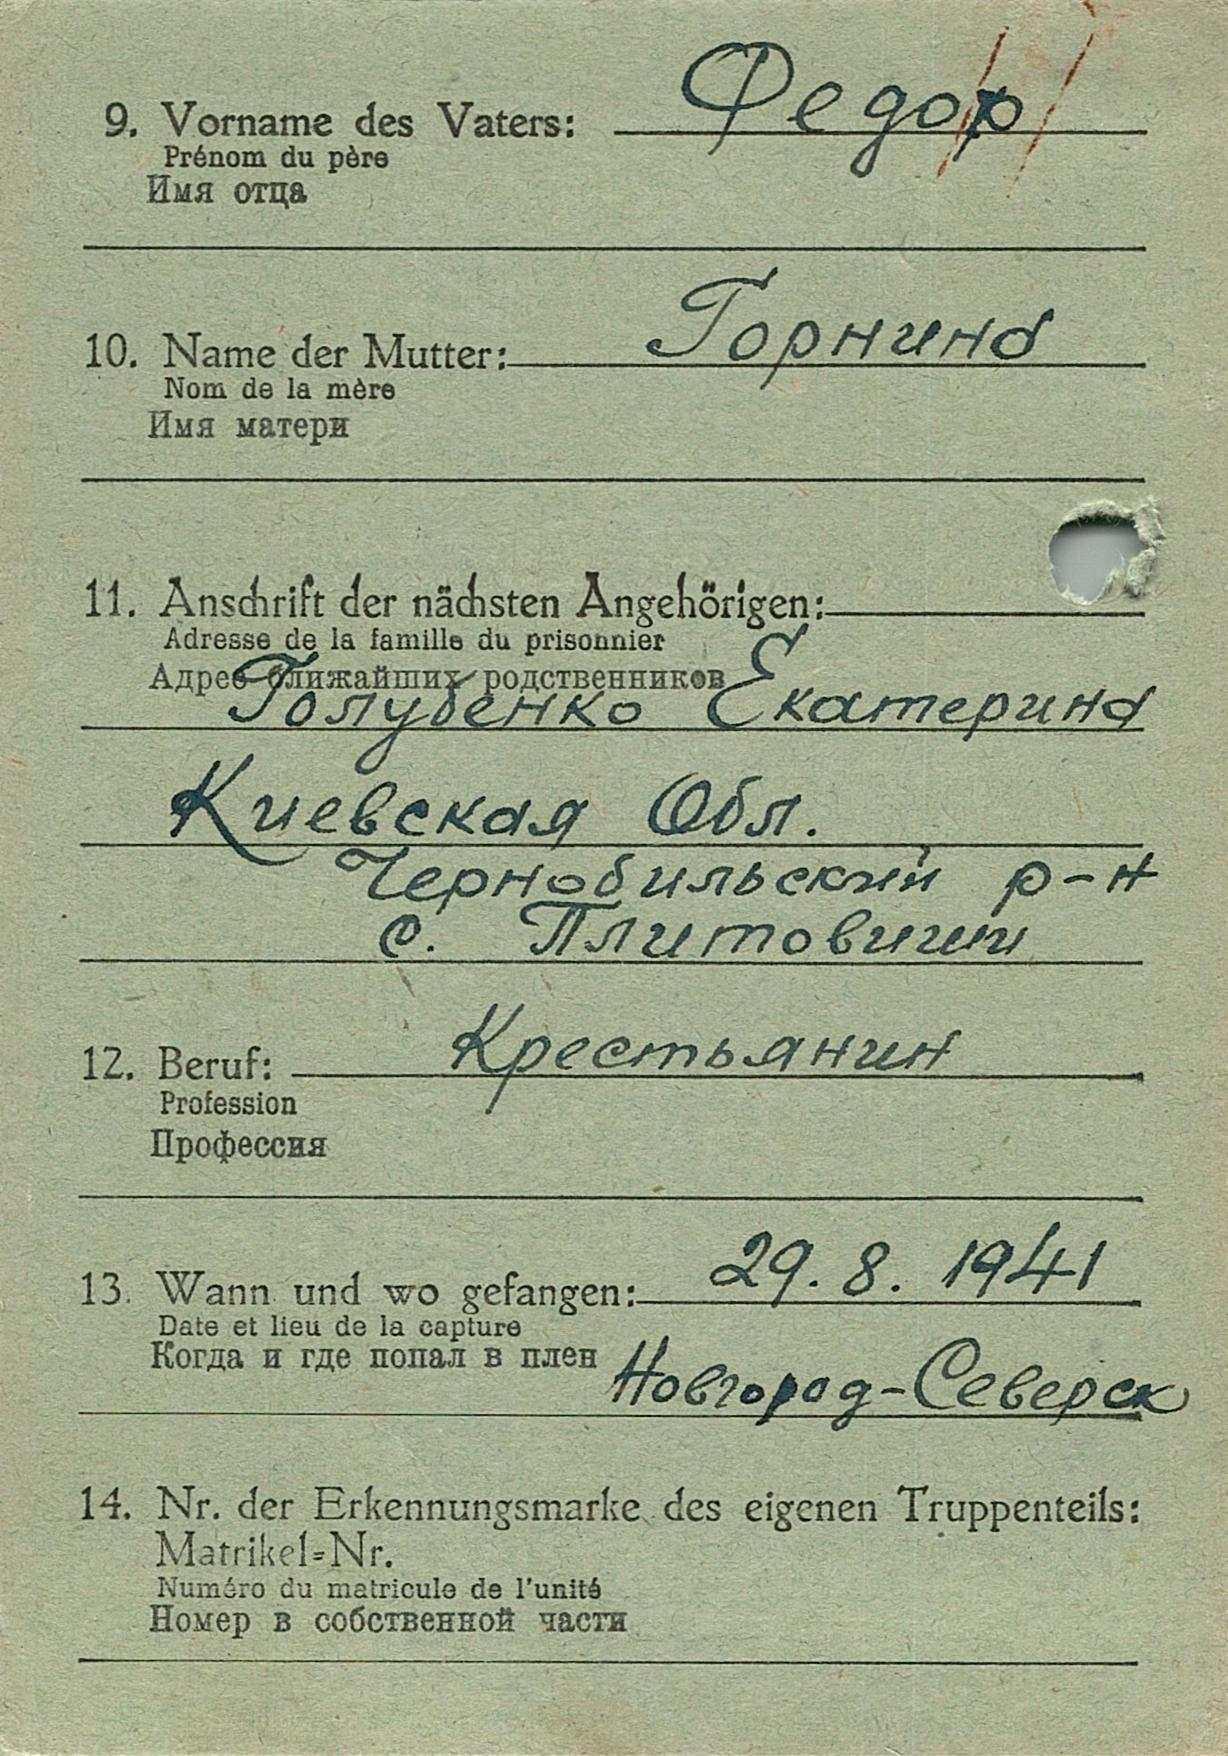 9. Vorname des Vaters: Федор
Prénom du père
Имя отца
10. Name der Mutter: Горнина
Nom de la mère
Имя матери
11. Anschrift der nächsten Angehörigen:
Adresse de la famille du prisonnier
Адрес ближайших родственников
Голубенко Екатерина
Киевская Обл.
Чернобильский р-н
с. Плитовищи
12. Beruf: Крестьянин
Profession
Профессия
13. Wann und wo gefangen: 29. 8. 1941
Date et lieu de la capture
Когда и где попал в плен Новгород-Северск
14. Nr. der Erkennungsmarke des eigenen Truppenteils:
Matrikel=Nr.
Numéro du matricule de l'unité
Номер в собственной части